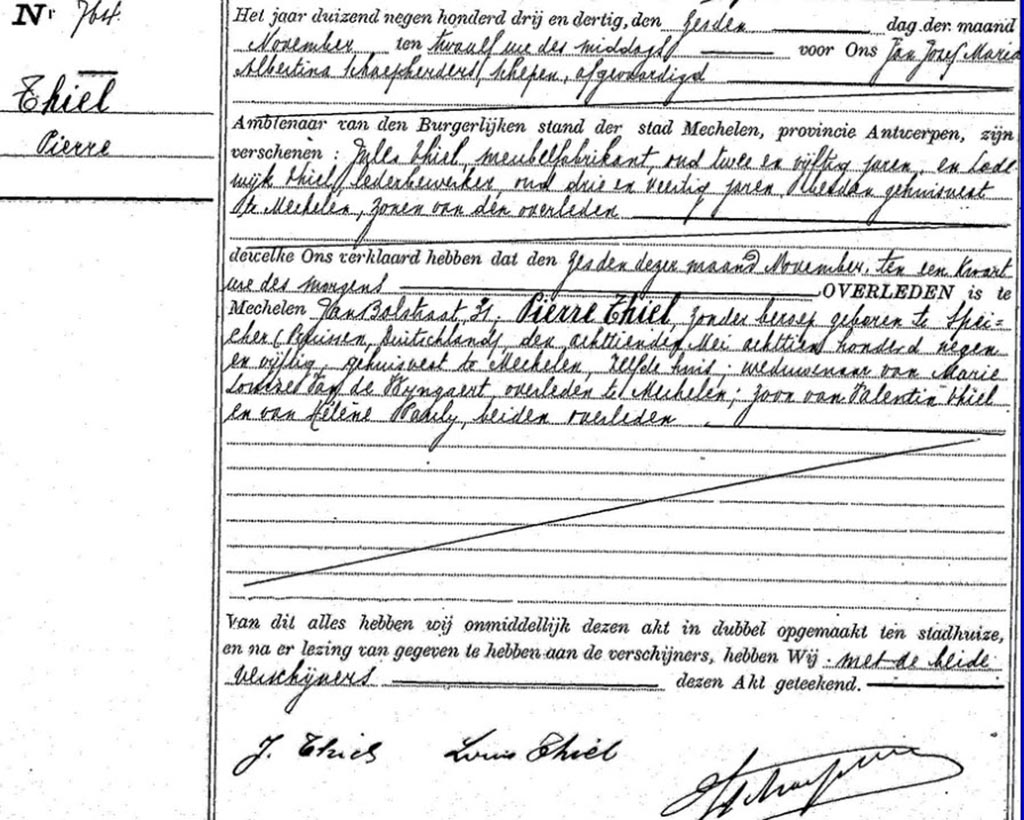 Nr 764.
Thiel
Pierre
Het jaar duizend negen honderd drij en dertig, den zesden dag der maand
November ten twaalf ure des middags voor Ons Jan Jozef Maria
Albertina Schaepherders, schepen, afgevaardigd
Ambtenaar van den Burgerlijken stand der stad Mechelen, provincie Antwerpen, zijn
verschenen : Jules Thiel, meubelfabrikant, oud twee en vijftig jaren, en Lode
wijk Thiel, lederbewerker, oud drie en veertig jaren, beiden gehuisvest
te Mechelen, zonen van den overleden
dewelke Ons verklaard hebben dat den zesden dezer maand November, ten een kwart
ure des morgens OVERLEDEN is te
Mechelen Van Bolstraat, 31, Pierre Thiel, zonder beroep geboren te Spei=
cher (Pruisen, Duitschland), den achttienden Mei achttien honderd negen
en vijftig, gehuisvest te Mechelen, zelfde huis; weduwenaar van Marie
Louize Van de Wyngaert, overleden te Mechelen; zoon van Valentin Thiel
en van Hélène Pauly, beiden overleden
Van dit alles hebben wij onmiddellijk dezen akt in dubbel opgemaakt ten stadhuize,
en na er lezing van gegeven te hebben aan de verschijners, hebben Wij met de beide
verschijners dezen Akt geteekend.
J. Thiel Louis Thiel